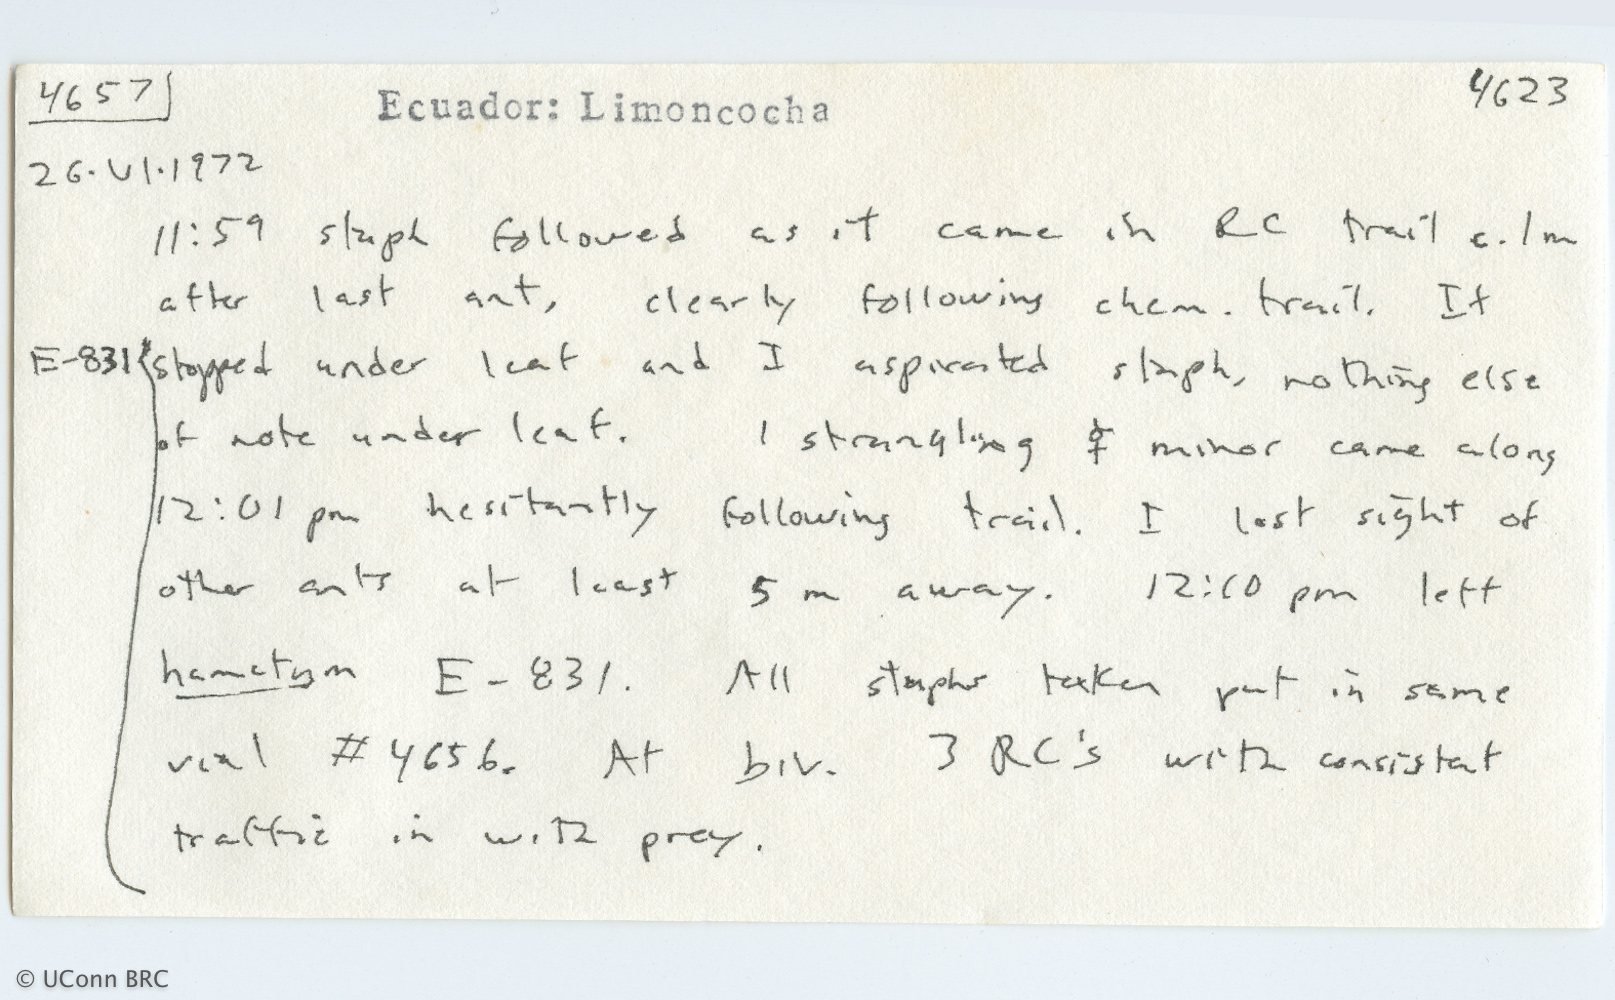 4657
Ecuador: Limoncocha
4623
26.VI.1972
11:59 staph followed as it came in RC trail c. 1m
after last ant, clearly following chem. trail. It
E-831 { stopped under leaf and I aspirated staph, nothing else
of note under leaf. 1 straggling ☿ minor came along
12:01 pm hesitantly following trail. I lost sight of
other ants at least 5 m away. 12:10 pm left
hamatum E-831. All staphs taken put in same
vial #4656. At biv. 3 RC's with consistat
traffic in with prey.
© UConn BRC